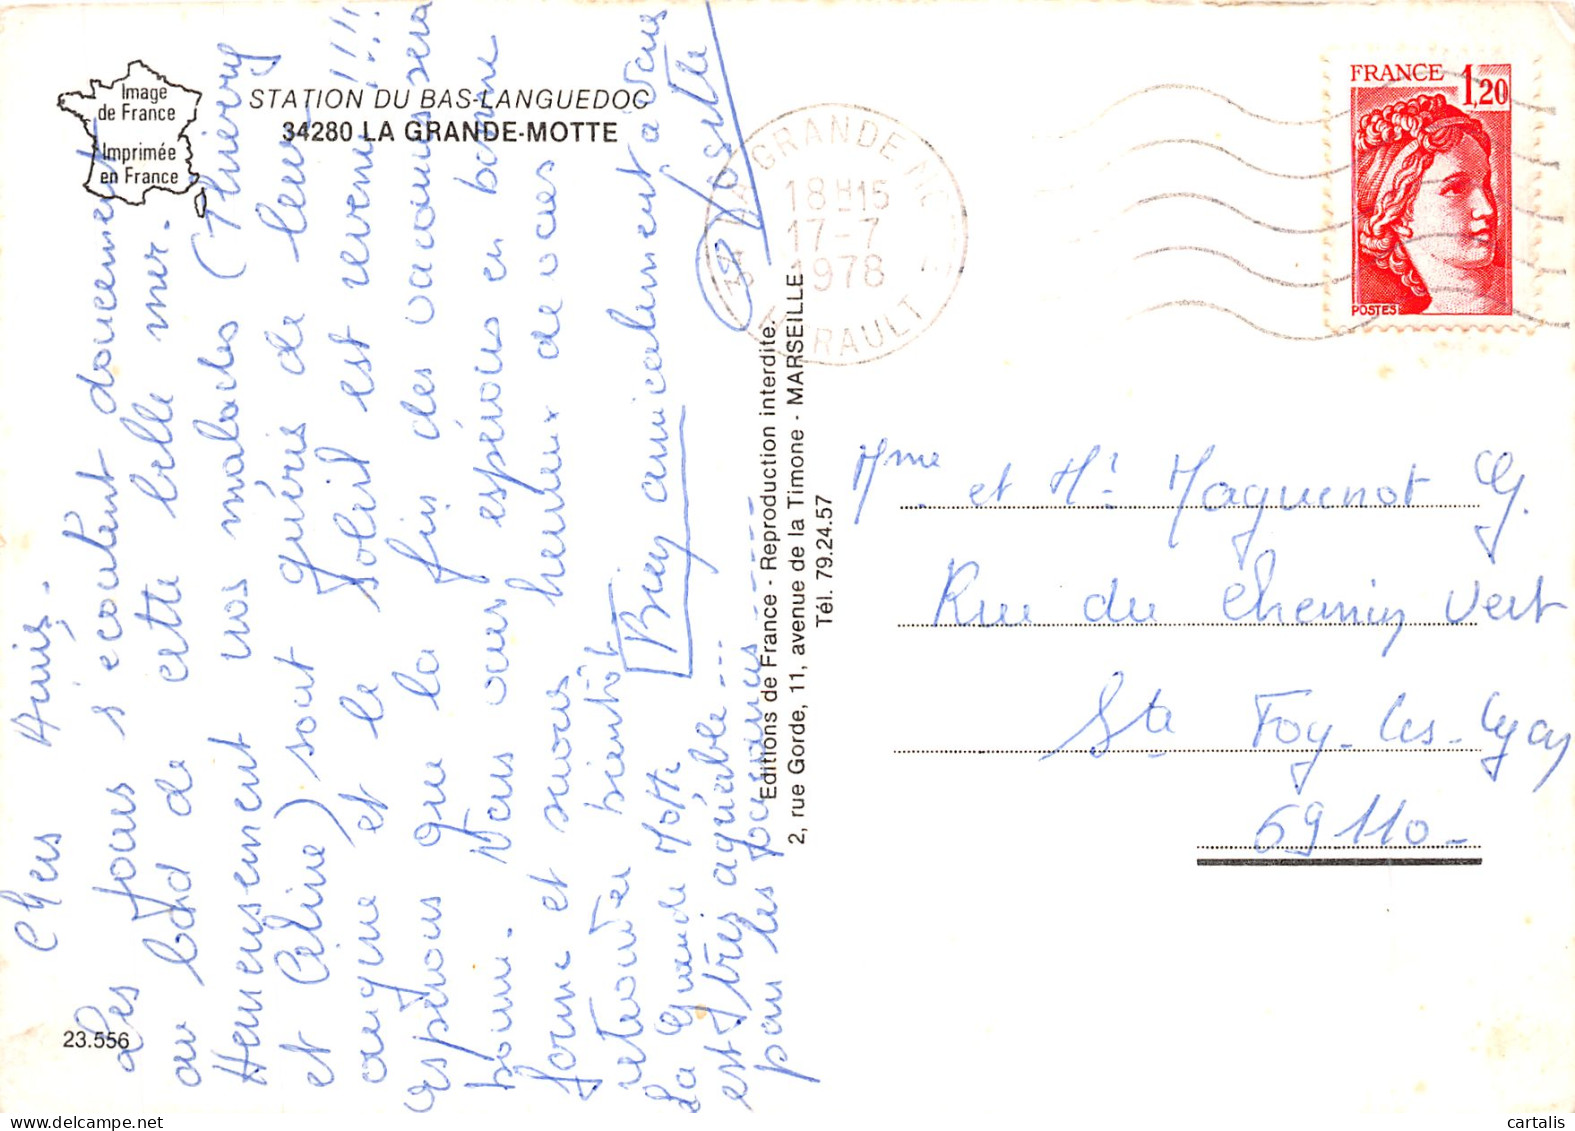 Image
de France
Imprimée
en France
STATION DU BAS-LANGUEDOC
34280 LA GRANDE-MOTTE
Chers Amis.
Les jours s'écoulent doucement
au bord de cette belle mer.
Heureusement nos malades (Thierry
et Céline) sont guéris de leur
angine et le soleil est revenu !!!
espérons que la fin des vacances sera
bonne. Nous vous espérons en bonne
forme et serons heureux de vous
retrouver bientôt
Bien amicalement à vous
La Grande Motte
est très agréable...
par les
23.556
Editions de France - Reproduction interdite.
2, rue Gorde, 11, avenue de la Timone - MARSEILLE
Tél. 79.24.57
LA GRANDE MOTTE
18H15
17-7
1978
HERAULT
FRANCE 1,20
POSTES
Mme et Mr Maguenot G.
Rue du Chemin Vert
Ste Foy-les-Lyon
69110-
cartalis.com